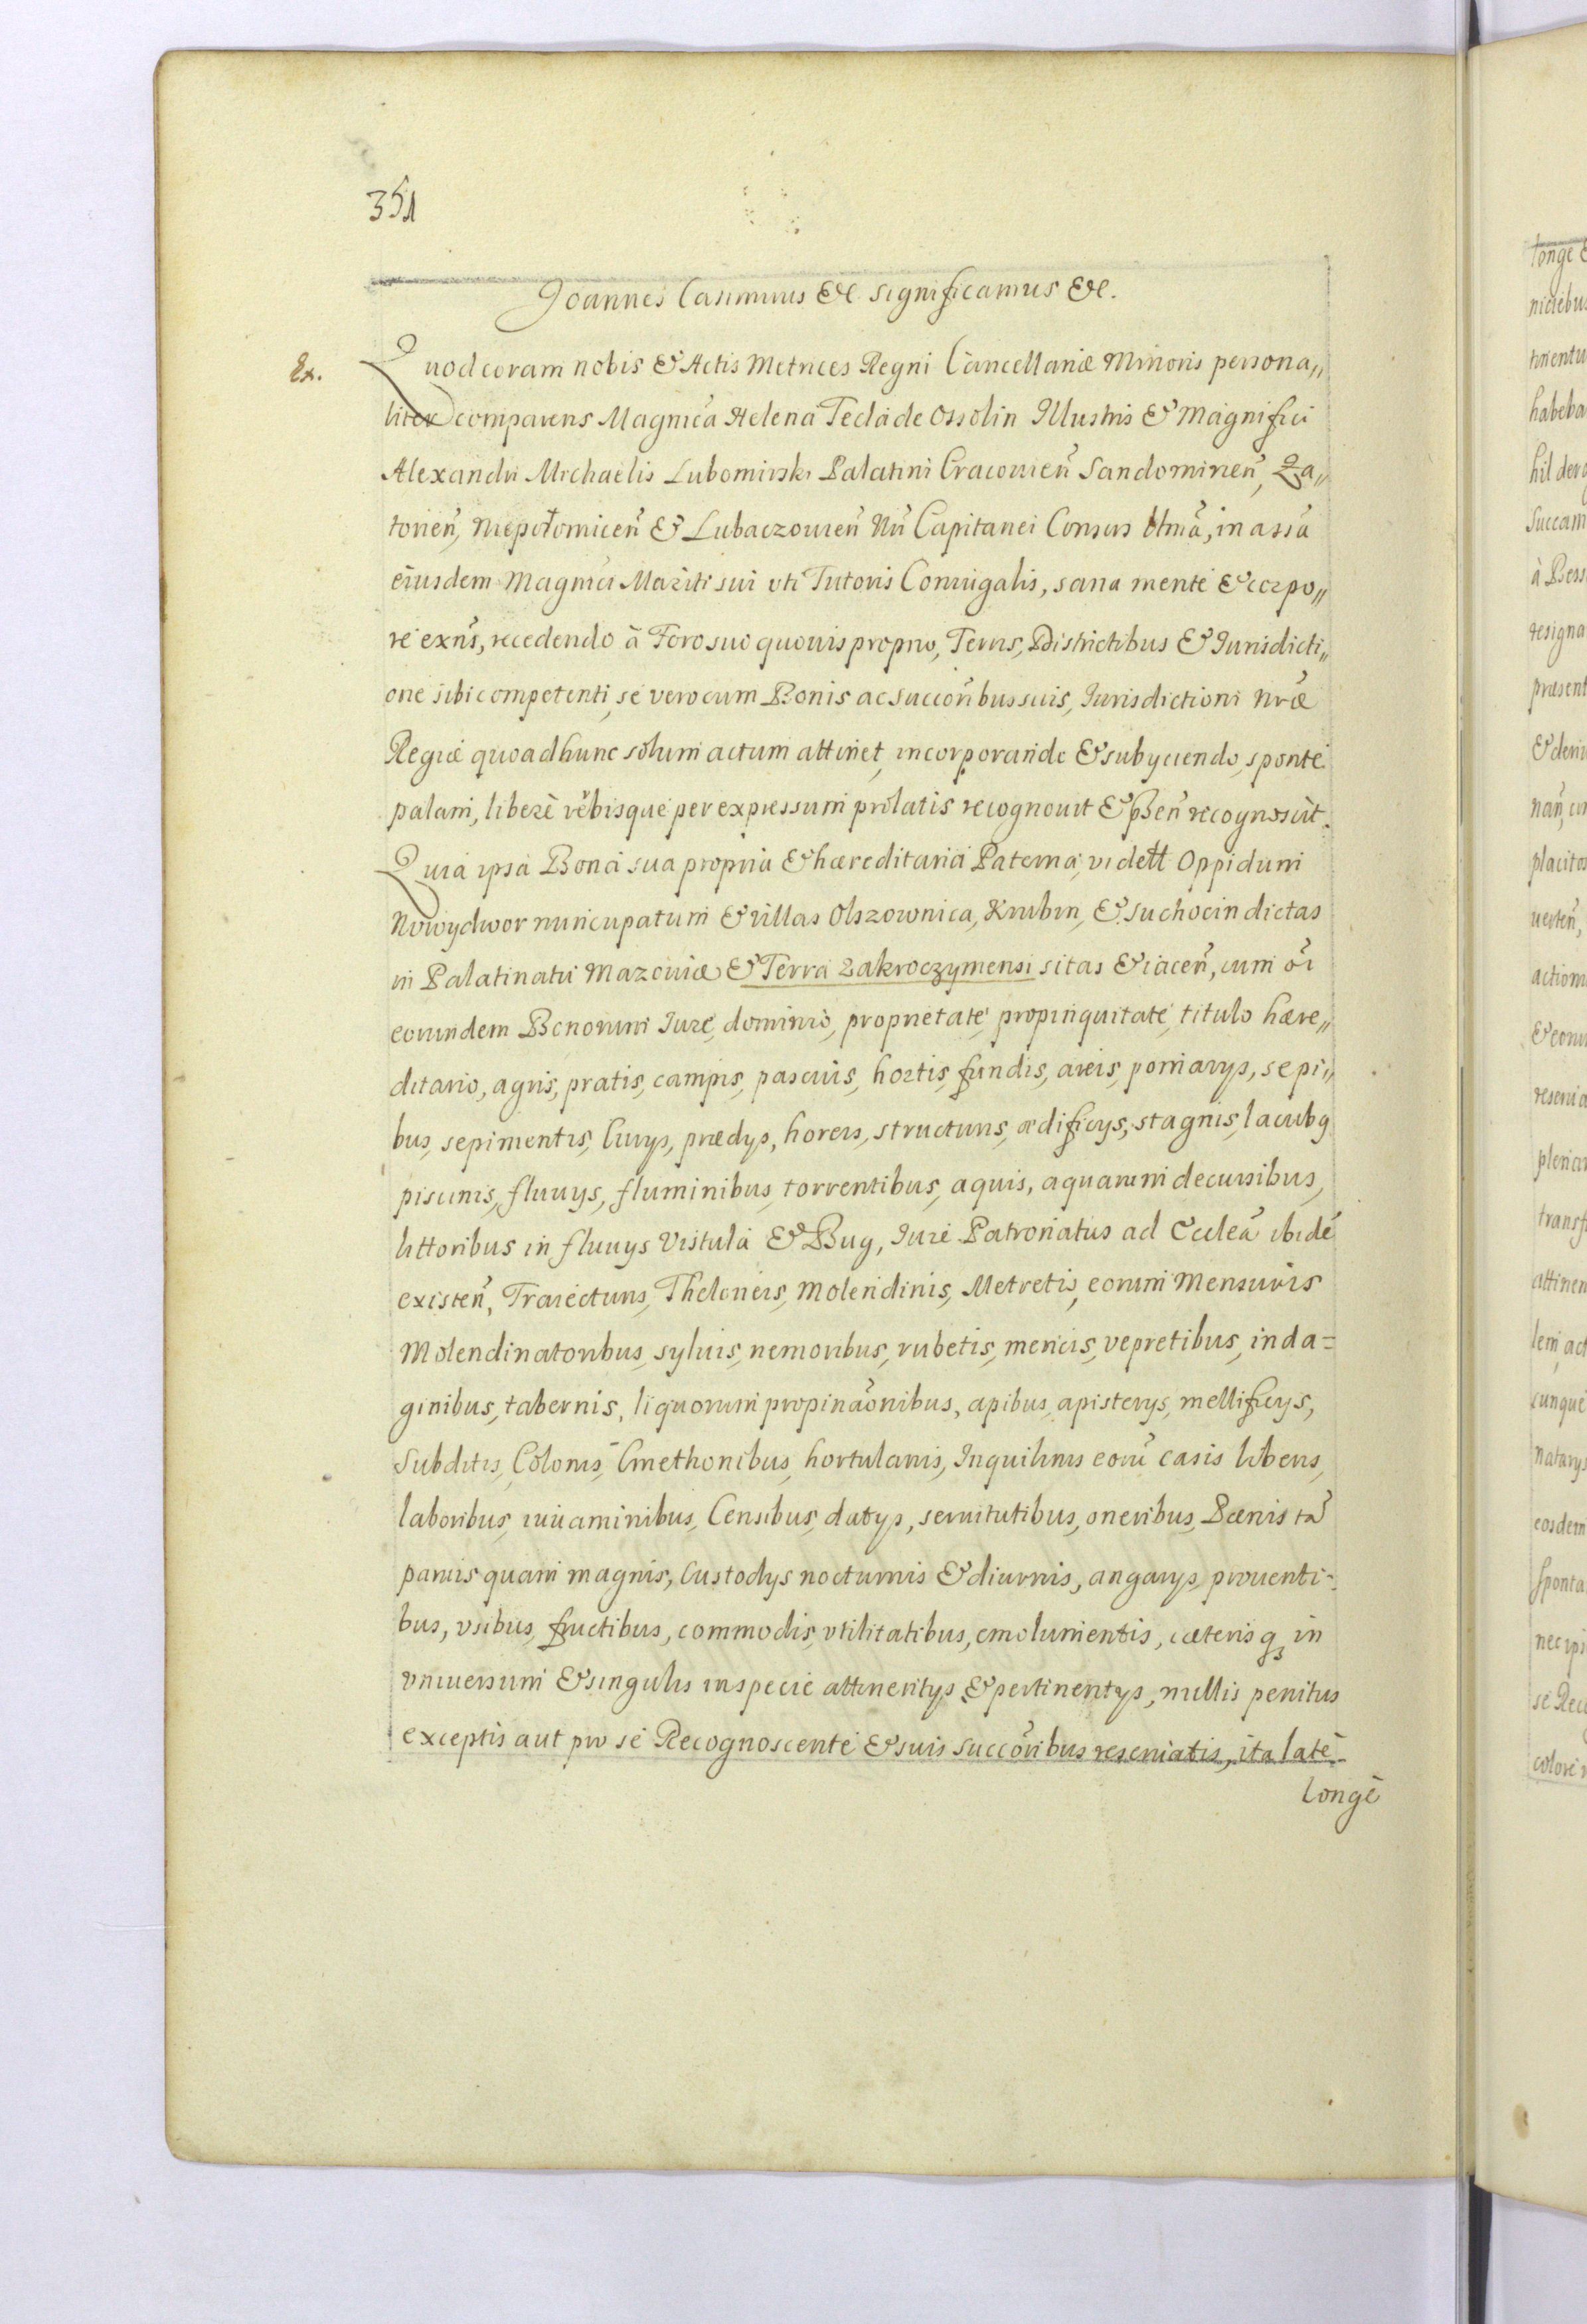 351
Joannes Casimirus &c significamus &c.
Ex.
Quod coram nobis & Actis Metrices Regni Cancellariæ Minoris persona„
liter comparens Magnica Helena Tecla de Ossolin Illustris & Magnifici
Alexandri Michaelis Lubomirski Palatini Cracouien̄ Sandomirien̄, Za„
torien̄, Niepołomicen̄ & Lubaczouien̄ Nri Capitanei Consors Ltmā, in assā
eiusdem Magnici Mariti sui vti Tutoris Coniugalis, sana mente & corpo„
re exn̄s, recedendo à Foro suo quouis proprio, Terris, Districtibus & Jurisdicti„
one sibi competenti, se vero cum Bonis ac succoribus suis, Jurisdictioni Nræ
Regiæ quoad hunc solum actum attinet, incorporando & subyciendo, sponte
palam, liberè verbisque per expressum prolatis recognouit & pꝛsen̄ recognoscit.
Quia ipsa Bona sua propria & hæreditaria Paterna, vidett Oppidum
Nowydwor nuncupatum & villas Olszownica, Krubin, & Suchocin dictas
in Palatinatu Mazouiæ & Terra Zakroczymensi sitas & iacen̄, cum oi
eorundem Bonorum Jure, dominio, proprietate, propinquitate, titulo hære„
ditario, agris, pratis, campis, pascuis, hortis, fundis, areis, pomarys, sepi„
bus, sepimentis, Curys, prædys, horreis, structuris, ædificys, stagnis, lacubq
piscinis, fluuys, fluminibus, torrentibus, aquis, aquarum decursibus,
littoribus in fluuys Vistula & Bug, Jure Patronatus ad Eccleā ibidē
existen̄, Traiecturis, Theloneis, Molendinis, Metretis, eorum Mensuris
Molendinatoribus, syluis, nemoribus, rubetis, mericis, vepretibus, inda=
ginibus, tabernis, liquorum propinaōnibus, apibus, apisterys, mellificys,
Subditis, Colonis, Cmethonibus, hortulanis, Inquilinis eorū casis liberis,
laboribus, iuuaminibus, Censibus, datys, seruitutibus, oneribus, Pænis tā
paruis quam magnis, Custodys nocturnis & diurnis, angarys, prouenti-
bus, vsibus, fructibus, commodis, vtilitatibus, emolumentis, cæterisq in
vniuersum & singulis in specie attinentys & pertinentys, nullis penitus
exceptis aut pro se Recognoscente & suis succoribus reseruatis, ita latè
longè